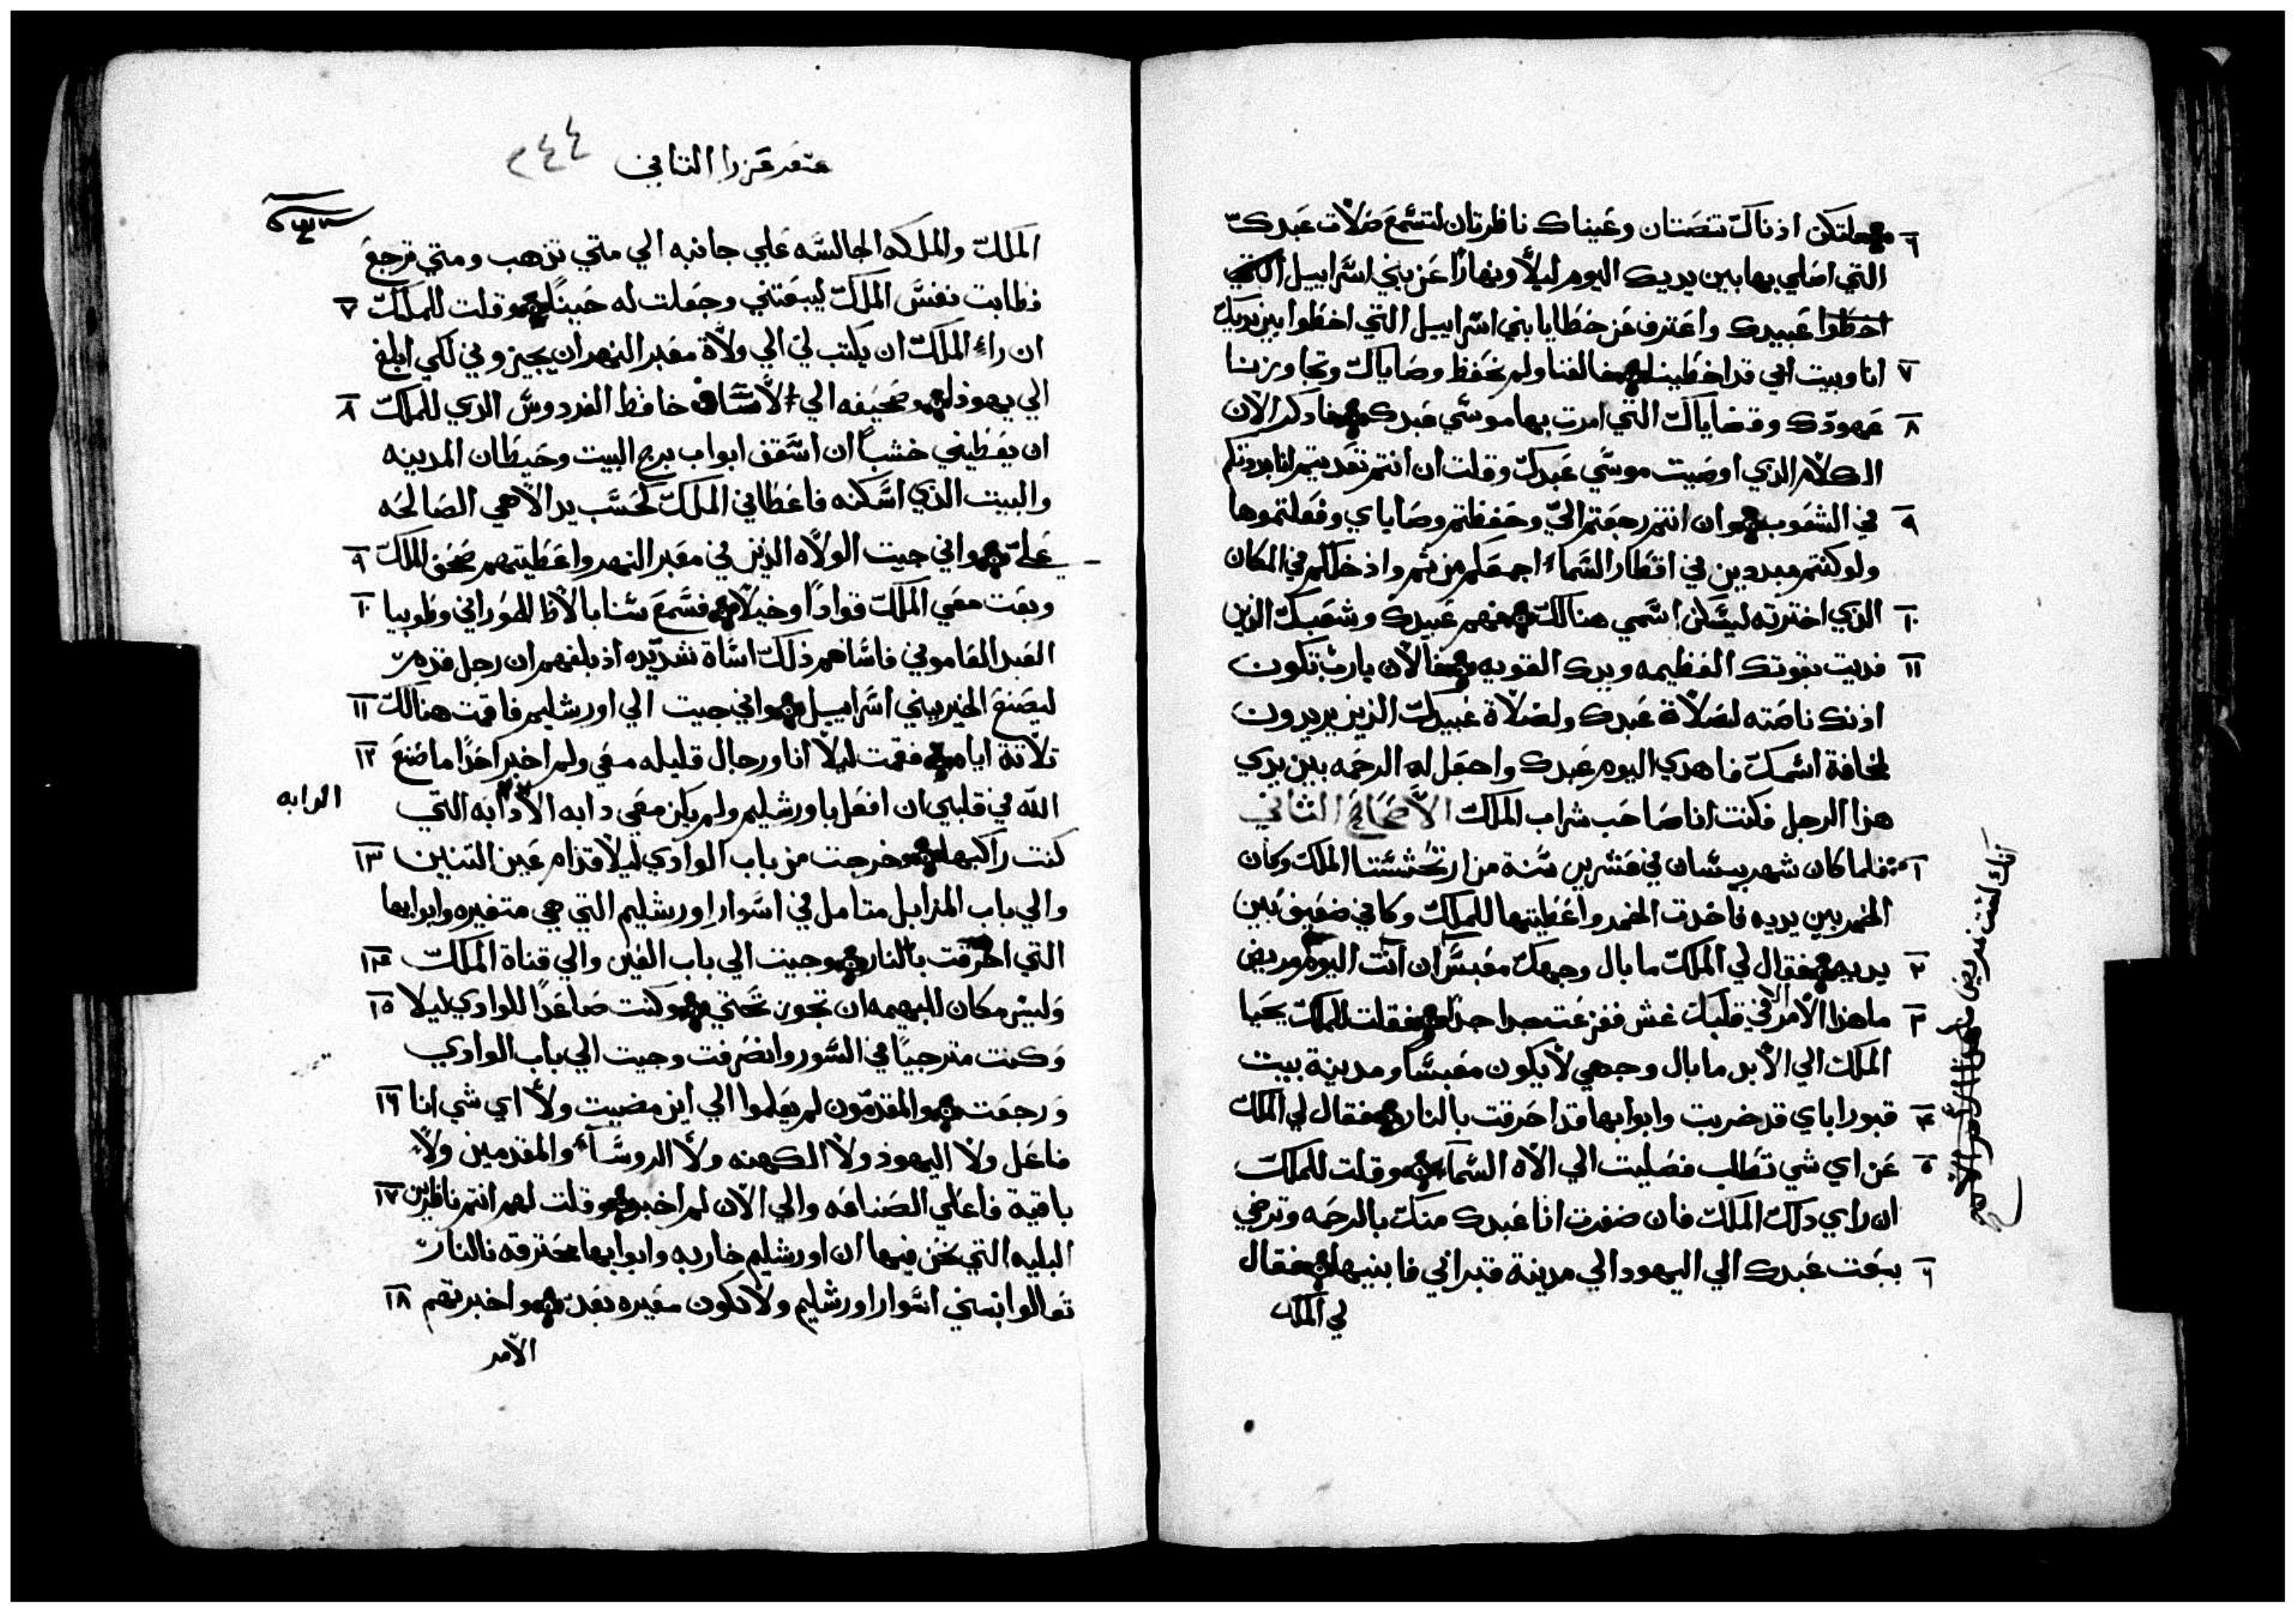 ٦ فلتكن اذناك تنصتان وعيناك ناظرتان لتسمع صلاة عبدك
التي اصلي بها بين يديك اليوم ليلاً ونهارًا عن بني اسراييل
عبيدك واعترف عن خطايا بني اسراييل التي اخطوا بين يديك
٧ انا وبيت ابي قد اخطينا خالفنا ولم نحفظ وصاياك وتجاوزنا
٨ عهودك وقضاياك التي امرت بها موسي عبدك فادكر الان
الكلام الذي اوصيت موسي عبدك وقلت ان انتم تعديتم انا ابددكم
٩ في الشعوب وان انتم رجعتم اليّ وحفظتم وصاياي وفعلتموها
ولو كنتم مبددين في اقطار السماء اجمعكم من ثم وادخلكم في المكان
١٠ الذي اخترته ليسكن اسمي هنالك فهم عبيدك وشعبك الذين
١١ فديت بقوتك العظيمه ويدك القويه فالان يارب تكون
اذنك ناصته لصلاة عبدك ولصلاة عبيدك الذين يريدون
لمخافة اسمك فاهدي اليوم عبدك واجعل له الرحمه بين يدي
هذا الرجل فكنت انا صاحب شراب الملك الاصحاح الثاني
١ فلما كان شهر نيسان في عشرين سنة من ارتحششتا الملك وكان
الخمر بين يديه فاخدت الخمر واعطيتها للملك وكاني ضعيق بين
٢ يديه فقال لي الملك ما بال وجهك معبس ان انت اليوم مريض
٣ ما هذا الامر الا في قلبك غش ففزعت جدا جدا فقلت للملك يحيا
الملك الي الابد ما بال وجهي لا يكون معبسا ومدينة بيت
٤ قبور اباي قد خربت وابوابها قد احرقت بالنار فقال لي الملك
٥ عن اي شي تطلب فصليت الي الاه السماء وقلت للملك
ان راي دلك الملك فان ضفرت انا عبدك منك بالرحمه وترضي
٦ ببعت عبدك الي اليهود الي مدينة قبر ابي فابنيها فقال
لي الملك
سفر عزرا التاني ٢٤٤
الملك والملكه الجالسه علي جانبه الي متي تذهب ومتي ترجع
فطابت نفس الملك ليبعتني وجعلت له حينًا وقلت للملك ٧
ان راء الملك ان يكتب لي الي ولاة معبر النهر ان يجيزوني لكي ابلغ
الي يهودا وصحيفه الي الاساف حافظ الفردوس الذي للملك ٨
ان يعطيني خشبًا ان اسقف ابواب برج البيت وحيطان المدينه
والبيت الذي اسكنه فاعطاني الملك كحسب يد الاهي الصالحه
عليّ واني جيت الولاه الذين في معبر النهر واعطيتهم صحف الملك ٩
وبعت معي الملك قوادًا وخيلاً فسمع سنابالاط الحوراني وطوبيا ١٠
العبد العاموني فاساهم ذلك اساة شديده اذ بلغهم ان رجل قدم
ليصنع الخير ببني اسراييل واني جيت الي اورشليم فاقمت هنالك ١١
تلاتة ايام فقمت ليلا انا ورجال قليله معي ولم اخبر احدًا ما صنع ١٢
الله في قلبي ان افعل باورشليم ولم يكن معي دابه الا الدابه التي
الدابه
كنت راكبها وخرجت من باب الوادي ليلا قدام عين التنين ١٣
والي باب المزابل متامل في اسوار اورشليم التي هي متغيره وابوابها
التي احترقت بالنار وجيت الي باب العين والي قناة الملك ١٤
وليس مكان للبهيمه ان تجوز تحتي وكنت صاعدًا للوادي ليلا ١٥
وكنت مترجيًا في السور وانصرفت وجيت الي باب الوادي
ورجعت والمقدمون لم يعلموا الي اين مضيت ولا اي شي انا ١٦
فاعل ولا اليهود ولا الكهنه ولا الروساء والمقدمين ولا
باقية فاعلي الصناعه والي الان لم اخبر وقلت لهم انتم ناظرين ١٧
البليه التي نحن فيها ان اورشليم خاربه وابوابها محترقه بالنار
تعالوا نبني اسوار اورشليم ولا نكون معيره بعد واخبرتهم ١٨
الامر